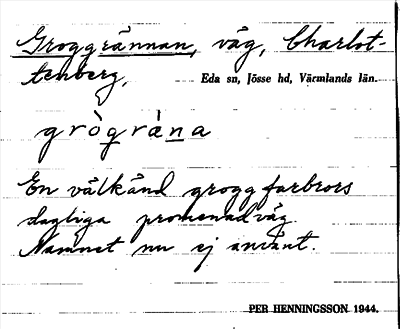 Groggrännan, väg, Charlot-
tenberg, Eda sn, Jösse hd, Värmlands län.
gròg̱ràṉa
En välkänd groggfarbrors
dagliga promenadväg.
Namnet nu ej använt.
PER HENNINGSSON 1944.